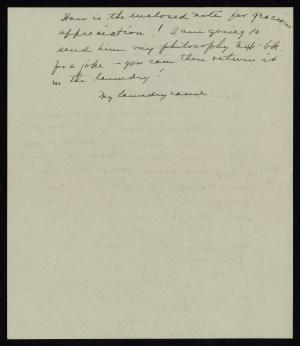 How is the enclosed note for gracious
appreciation! I am going to
send him my philosophy text-bk.
for a joke – you can then return it
in the laundry!
My laundry came.